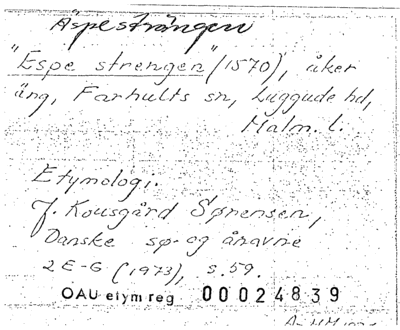 Äspesträngen
"Espe strengen" (1570), åker
äng, Farhults sn, Luggude hd,
Malm. l.
Etymologi.
J. Kousgård Sørensen,
Danske sø- og ånavne
2 E-G (1973), s. 59.
OAU etym reg 00024839